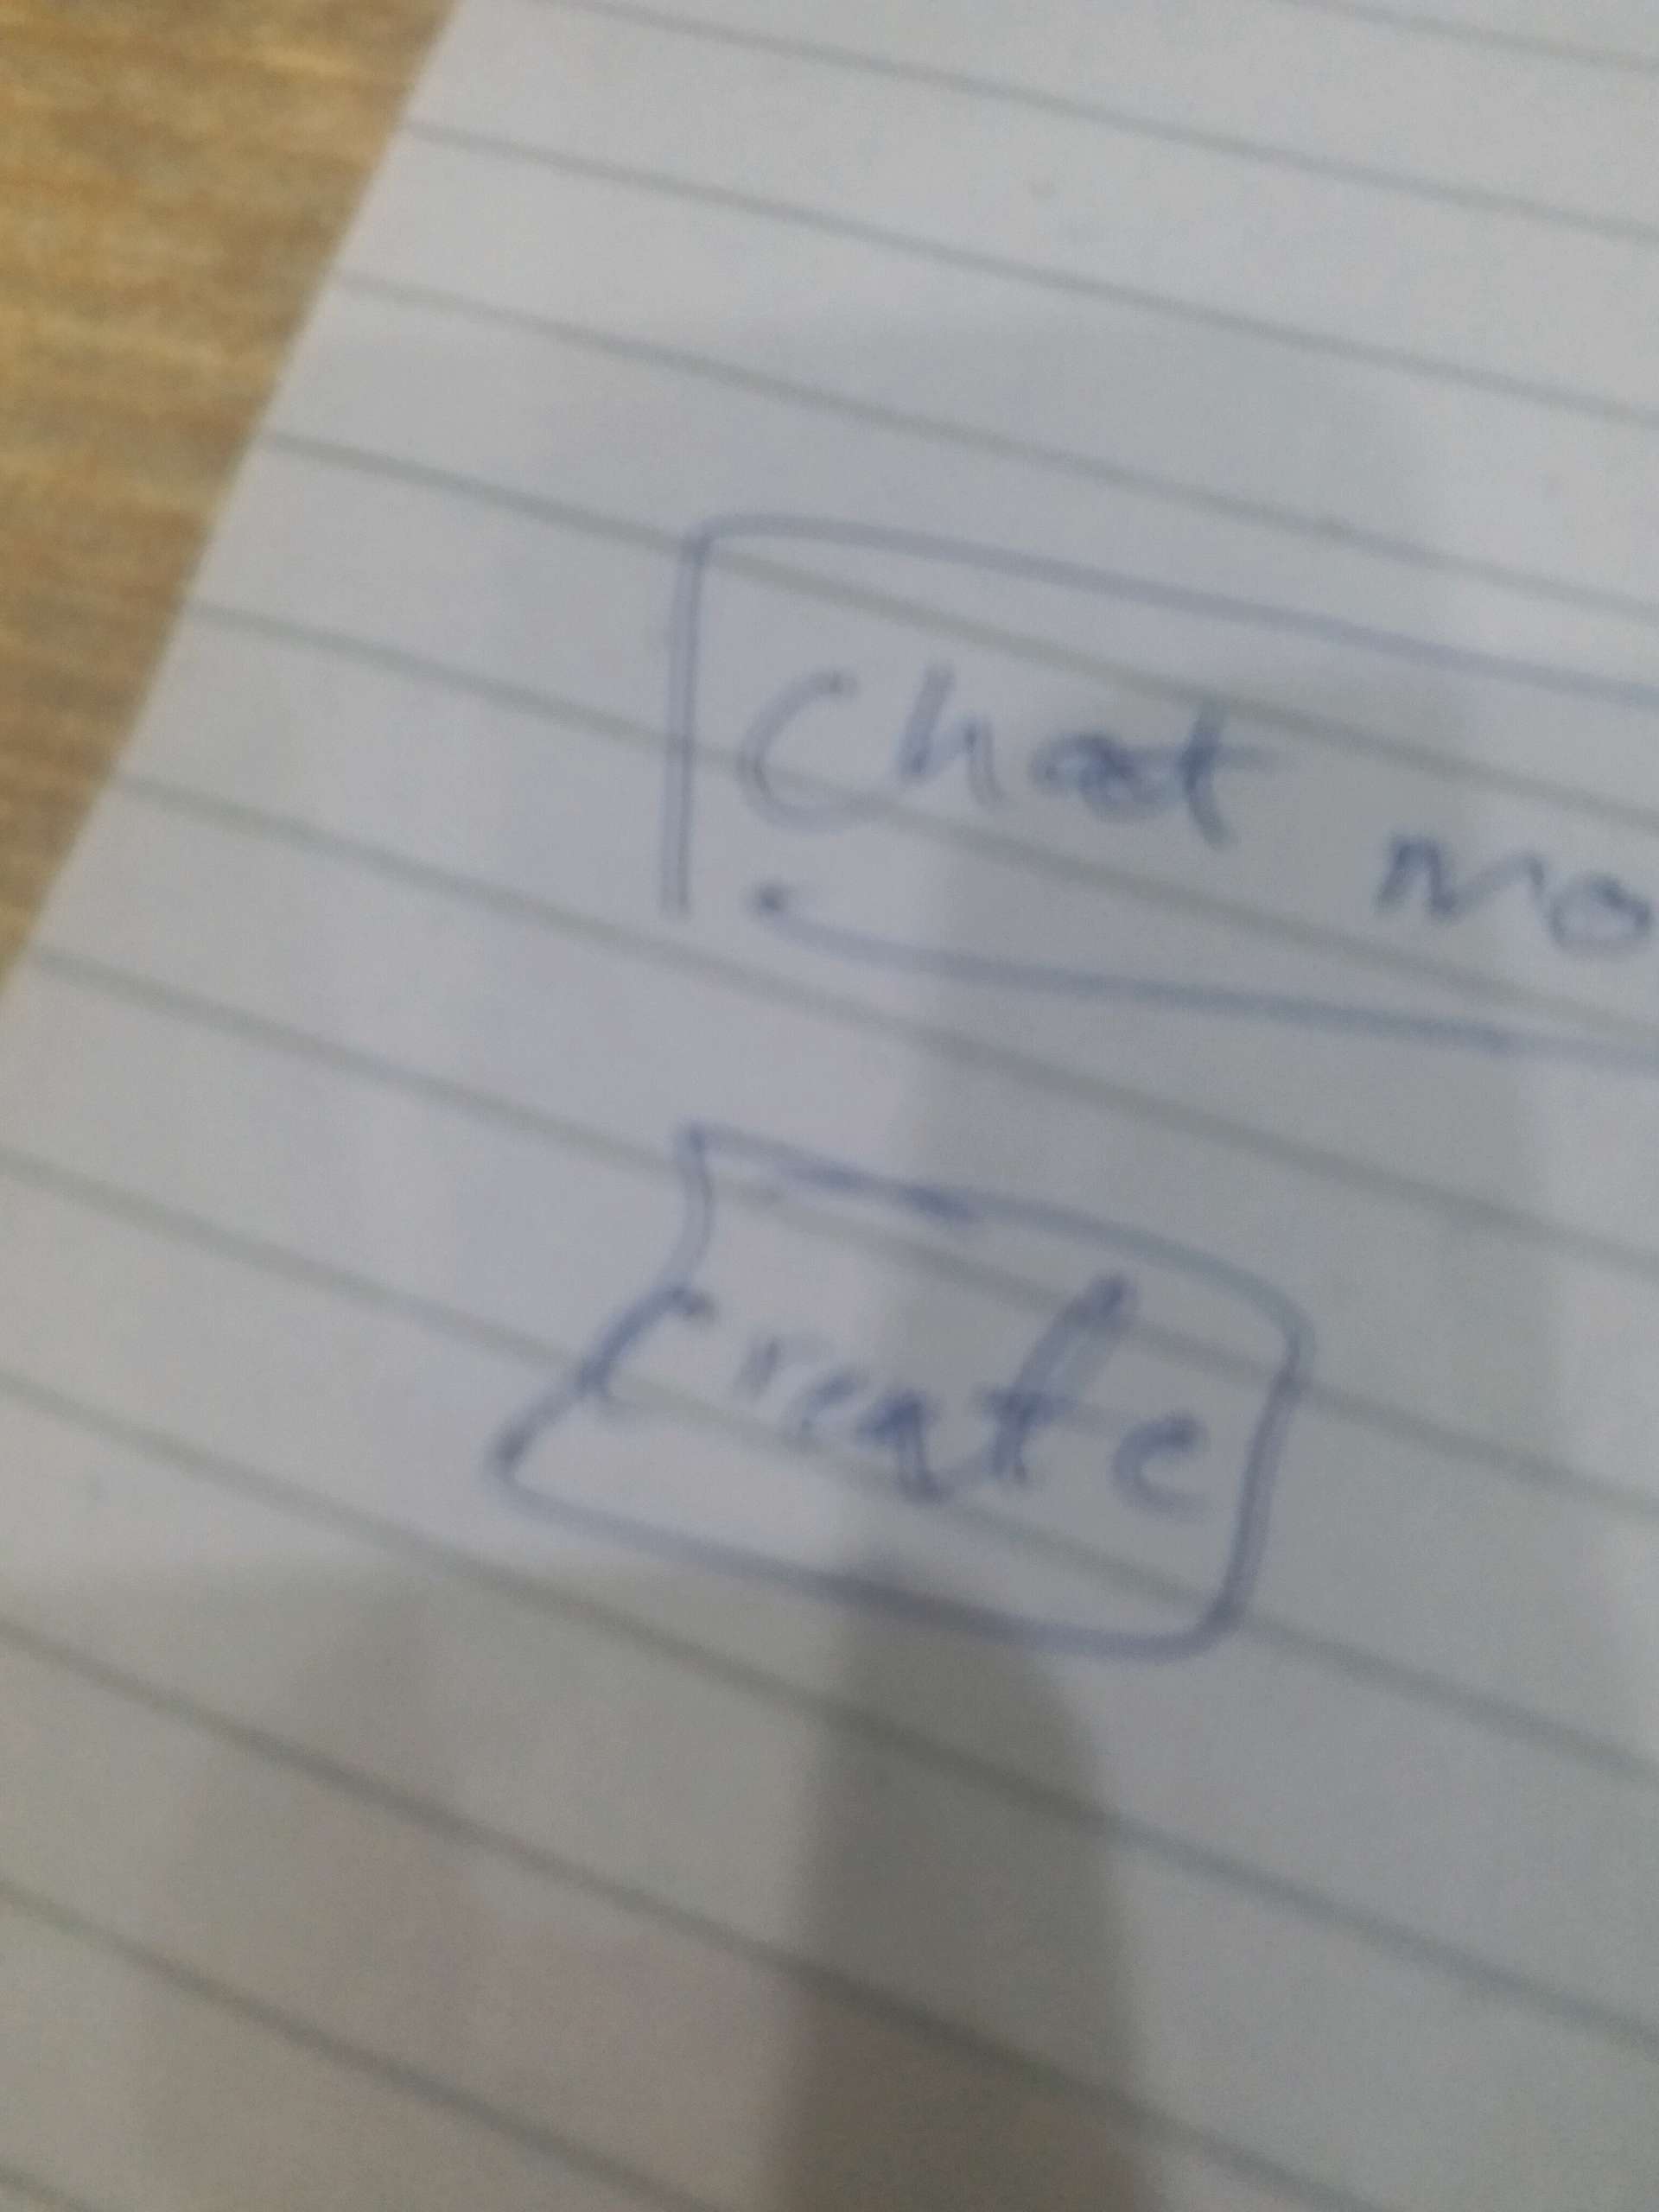 Chat mo
Create